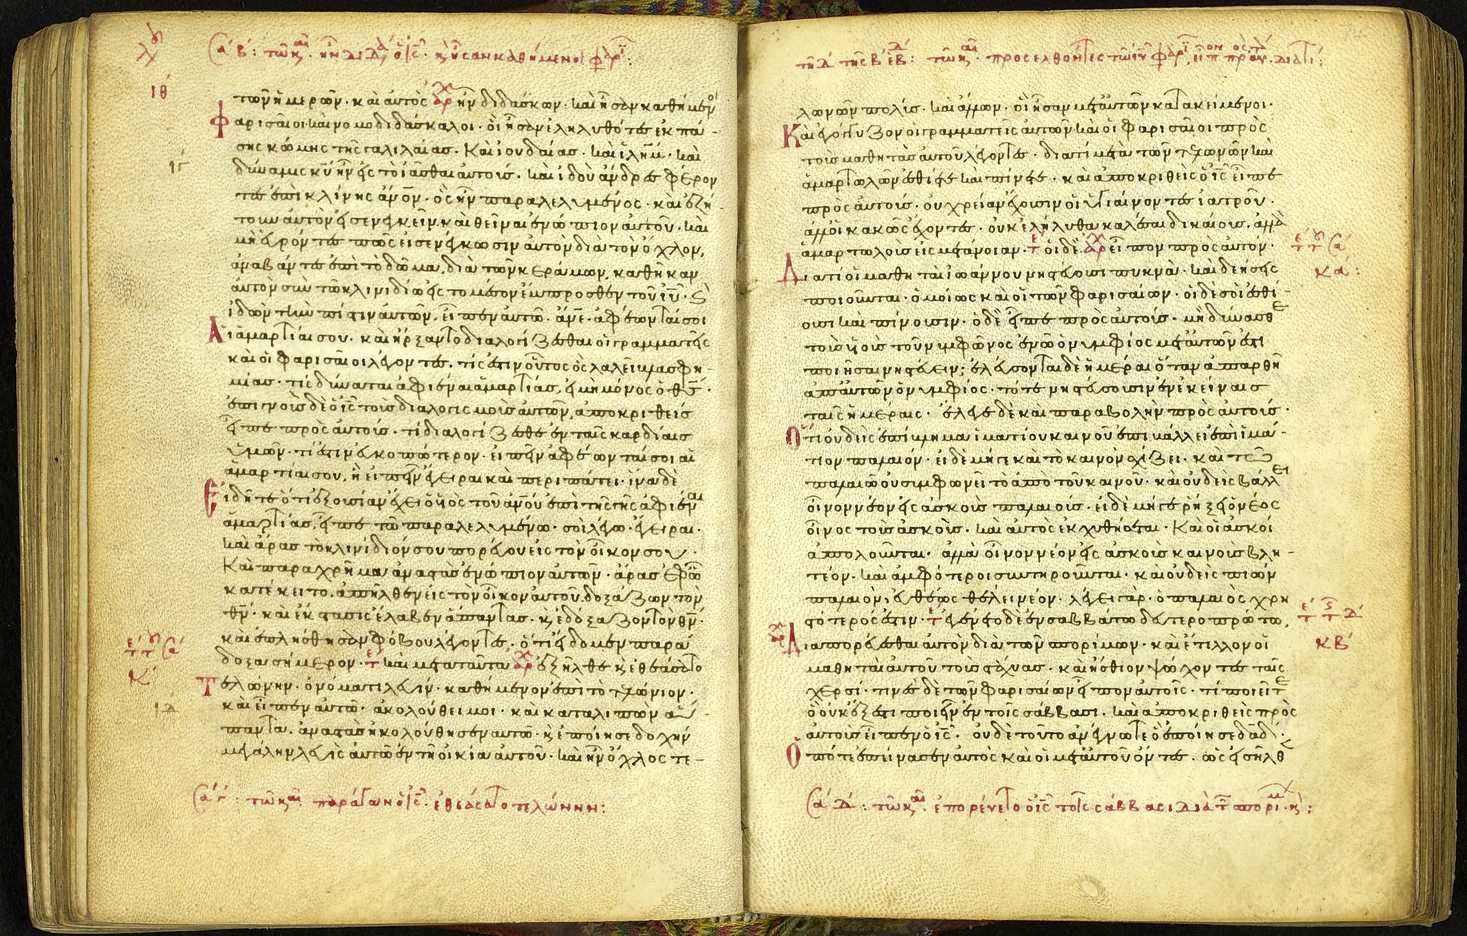 τῶν ἡμερῶν· καὶ αὐτὸς ἦν διδάσκων· καὶ ἦσαν καθήμενοι
φαρισαῖοι καὶ νομοδιδάσκαλοι· οἳ ἦσαν ἐληλυθότες ἐκ πά-
σης κώμης τῆς γαλιλαίας· καὶ ἰουδαίας· καὶ ἱλημ· καὶ
δύναμις κυ ἦν εἰς τὸ ἰᾶσθαι αὐτούς· καὶ ἰδοὺ ἄνδρες φέρον
τες ἐπὶ κλίνης ἄνον· ὃς ἦν παραλελυμένος· καὶ ἐζή
τουν αὐτὸν εἰσενεγκεῖν καὶ θεῖναι ἐνώπιον αὐτοῦ· καὶ
μὴ εὑρόντες πῶς εἰσενέγκωσιν αὐτὸν διὰ τὸν ὄχλον,
ἀναβάντες ἐπὶ τὸ δῶμα, διὰ τῶν κεράμων, καθῆκαν
αὐτὸν σὺν τῶ κλινιδίω εἰς τὸ μέσον ἔμπροσθεν τοῦ ιυ·
ἰδὼν τὴν πίστιν αὐτῶν, εἶπεν αὐτῶ· ἄνε· ἀφέωνταί σοι
αἱ ἁμαρτίαι σου· καὶ ἤρξαντο διαλογίζεσθαι οἱ γραμματεῖς
καὶ οἱ φαρισαῖοι λέγοντες· τίς ἐστιν οὗτος ὃς λαλεῖ βλασφη-
μίας· τίς δύναται ἀφιέναι ἁμαρτίας, εἰ μὴ μόνος ὁ θς·
ἐπιγνοὺς δὲ ὁ ις τοὺς διαλογισμοὺς αὐτῶν, ἀποκριθεὶς
εἶπε πρὸς αὐτούς· τί διαλογίζεσθε ἐν ταῖς καρδίαις
ὑμῶν· τί ἐστιν εὐκοπώτερον· εἰπεῖν ἀφέωνταί σοι αἱ
ἁμαρτίαι σου, ἢ εἰπεῖν ἔγειραι καὶ περιπάτει· ἵνα δὲ
εἰδῆτε ὅτι ἐξουσίαν ἔχει ὁ υἱὸς τοῦ ἀνου ἐπὶ τῆς γῆς ἀφιέναι
ἁμαρτίας, εἶπε τῶ παραλελυμένω· σοὶ λέγω· ἔγειραι·
καὶ ἄρας τὸ κλινίδιόν σου πορεύου εἰς τὸν οἶκον σου·
καὶ παραχρῆμα ἀναστὰς ἐνώπιον αὐτῶν· ἄρας ἐφ' ὃ
κατέκειτο, ἀπῆλθεν εἰς τὸν οἶκον αὐτοῦ δοξάζων τὸν
θν· καὶ ἔκστασις ἔλαβεν ἅπαντας· κ ἐδόξαζον τὸν θν·
καὶ ἐπλήσθησαν φόβου λέγοντες, ὅτι εἴδομεν παρά
δοξα σήμερον· καὶ μετὰ ταῦτα ἐξῆλθε κ ἐθεάσατο
τελώνην, ὀνόματι λευίν· καθήμενον ἐπὶ τὸ τελώνιον·
καὶ εἶπεν αὐτῶ· ἀκολούθει μοι· καὶ καταλιπὼν ἅ-
παντα, ἀναστὰς ἠκολούθησεν αὐτῶ· κ ἐποίησε δοχὴν
μεγάλην λευὶς αὐτῶ ἐν τῆ οἰκία αὐτοῦ· καὶ ἦν ὄχλος τε-
λωνῶν πολύς· καὶ ἄλλων· οἳ ἦσαν μετ' αὐτῶν κατακείμενοι·
καὶ ἐγόγγυζον οἱ γραμματεῖς αὐτῶν καὶ οἱ φαρισαῖοι πρὸς
τοὺς μαθητὰς αὐτοῦ λέγοντες· διατί μετὰ τῶν τελωνῶν καὶ
ἁμαρτωλῶν ἐσθίετε καὶ πίνετε· καὶ ἀποκριθεὶς ὁ ις εἶπε
πρὸς αὐτούς· οὐ χρείαν ἔχουσιν οἱ ὑγιαίνοντες ἰατροῦ·
ἀλλ' οἱ κακῶς ἔχοντες· οὐκ ἐλήλυθα καλέσαι δικαίους, ἀλλὰ
ἁμαρτωλοὺς εἰς μετάνοιαν· οἱ δὲ εἶπον πρὸς αὐτόν·
διατί οἱ μαθηταὶ ἰωάννου νηστεύουσι πυκνά· καὶ δεήσεις
ποιοῦνται· ὁμοίως καὶ οἱ τῶν φαρισαίων· οἱ δὲ σοὶ ἐσθί-
ουσι καὶ πίνουσιν· ὁ δὲ εἶπε πρὸς αὐτούς· μὴ δύνασθε
τοὺς υἱοὺς τοῦ νυμφῶνος ἐν ὧ ὁ νυμφίος μετ' αὐτῶν ἐστι
ποιῆσαι νηστεύειν; ἐλεύσονται δὲ ἡμέραι ὅταν ἀπαρθῆ
ἀπ' αὐτῶν ὁ νυμφίος· τότε νηστεύσουσιν ἐν ἐκείναις
ταῖς ἡμέραις· ἔλεγε δὲ καὶ παραβολὴν πρὸς αὐτούς·
ὅτι οὐδεὶς ἐπίβλημα ἱματίου καινοῦ ἐπιβάλλει ἐπὶ ἱμά-
τιον παλαιόν· εἰ δὲ μήγε καὶ τὸ καινὸν σχίζει· καὶ τῶ
παλαιῶ οὐ συμφωνεῖ τὸ ἀπὸ τοῦ καινοῦ· καὶ οὐδεὶς βάλλει
οἶνον νέον εἰς ἀσκοὺς παλαιούς· εἰ δὲ μήγε ῥήξει ὁ νέος
οἶνος τοὺς ἀσκούς· καὶ αὐτὸς ἐκχυθήσεται· καὶ οἱ ἀσκοὶ
ἀπολοῦνται· ἀλλὰ οἶνον νέον εἰς ἀσκοὺς καινοὺς βλη-
τέον· καὶ ἀμφότεροι συντηροῦνται· καὶ οὐδεὶς πιὼν
παλαιὸν, εὐθέως θέλει νέον· λέγει γάρ· ὁ παλαιὸς χρη
στότερός ἐστιν· ἐγένετο δὲ ἐν σαββάτω δευτεροπρώτω,
διαπορεύεσθαι αὐτὸν διὰ τῶν σπορίμων· καὶ ἔτιλλον οἱ
μαθηταὶ αὐτοῦ τοὺς στάχυας· καὶ ἤσθιον ψώχοντες ταῖς
χερσί· τινὲς δὲ τῶν φαρισαίων εἶπον αὐτοῖς· τί ποιεῖτε
ὃ οὐκ ἔξεστι ποιεῖν ἐν τοῖς σάββασι· καὶ ἀποκριθεὶς πρὸς
αὐτοὺς εἶπεν ὁ ις· οὐδὲ τοῦτο ἀνέγνωτε ὃ ἐποίησε δαδ·
ὁπότε ἐπείνασεν αὐτὸς καὶ οἱ μετ' αὐτοῦ ὄντες· ὡς εἰσῆλθ